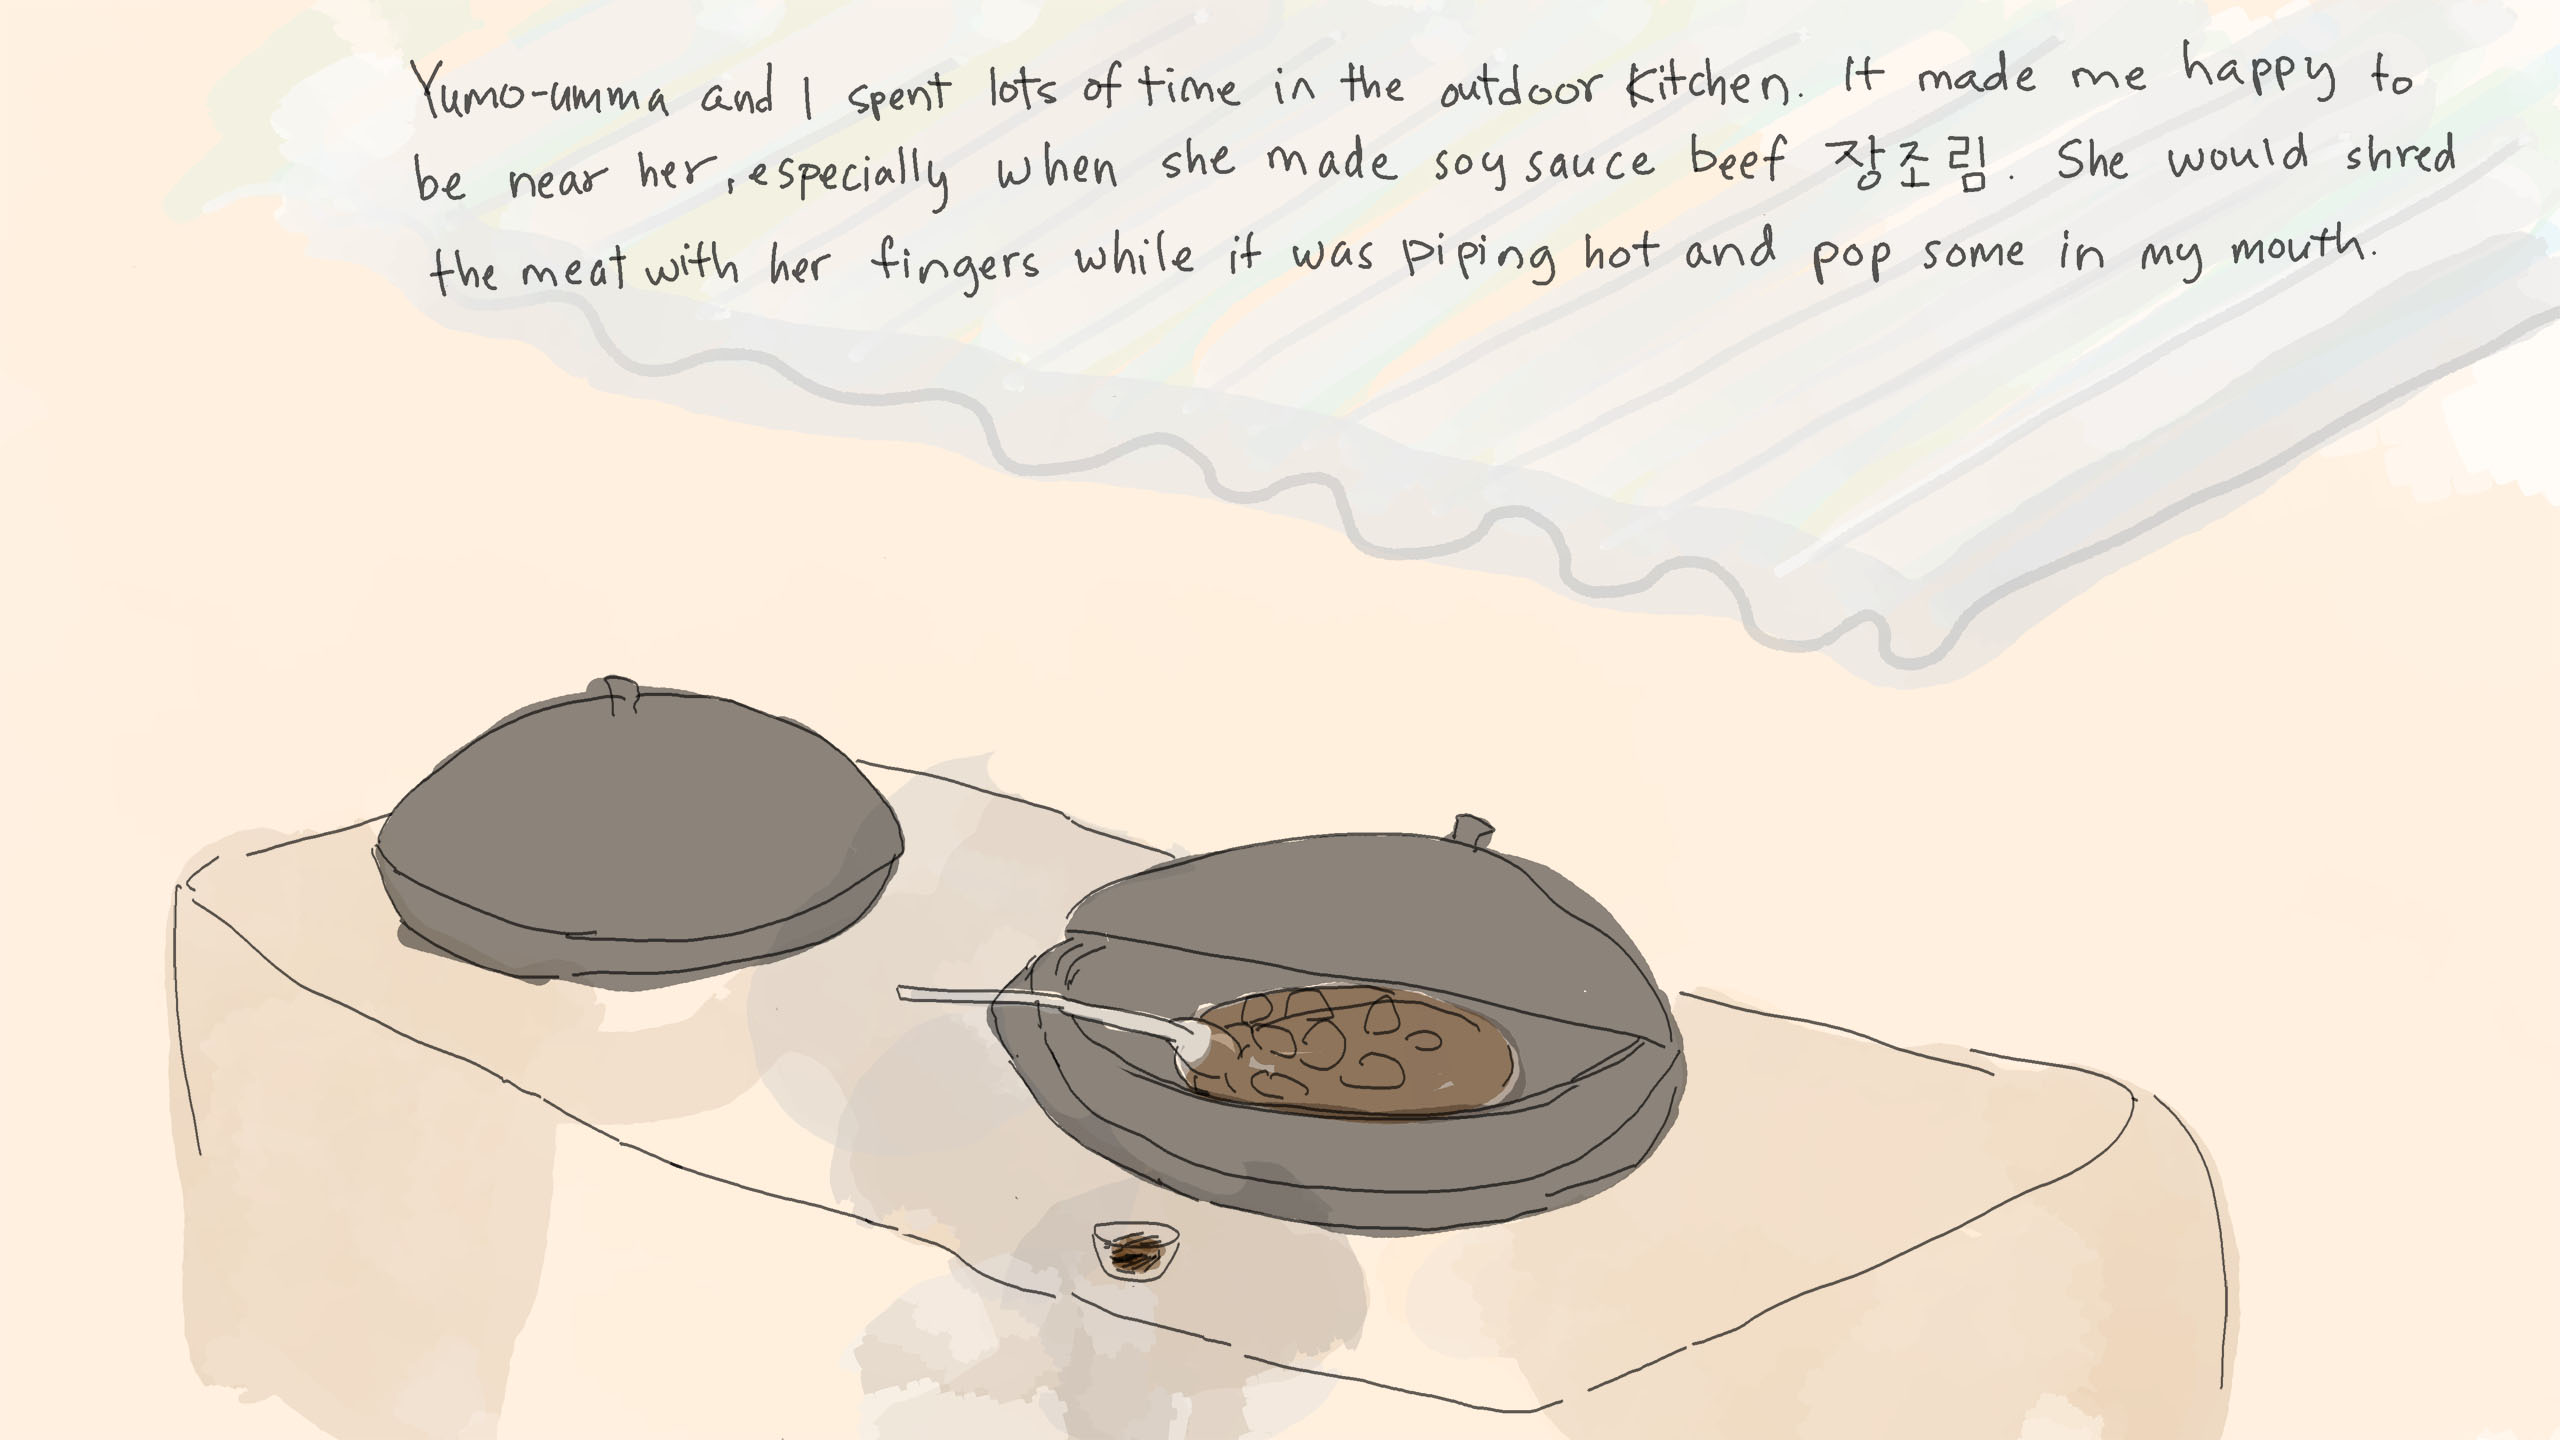 Yumo-umma and I spent lots of time in the outdoor kitchen. It made me happy to
be near her, especially when she made soy sauce beef 장조림. She would shred
the meat with her fingers while it was piping hot and pop some in my mouth.